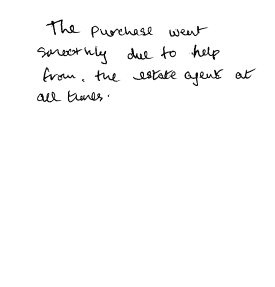 The purchase went
smoothly due to help
from, the estate agent at
all times.